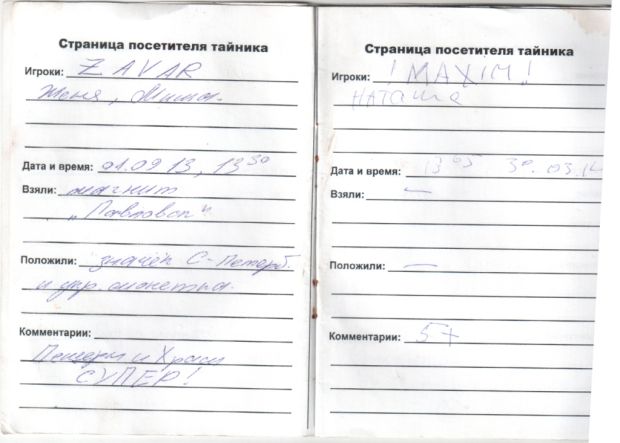 Страница посетителя тайника
Игроки: ZAVAR
Женя, Миша.
Дата и время: 01.09 13, 13 30
Взяли: магнит
„Павловск"
Положили: значёк С-Петерб.
и укр. монетка.
Комментарии:
Пещеры и Храм
СУПЕР!
Страница посетителя тайника
Игроки: ! MAXIM!
НАТАША
Дата и время: 13 05 30.03.14
Взяли: —
Положили: —
Комментарии: 5+